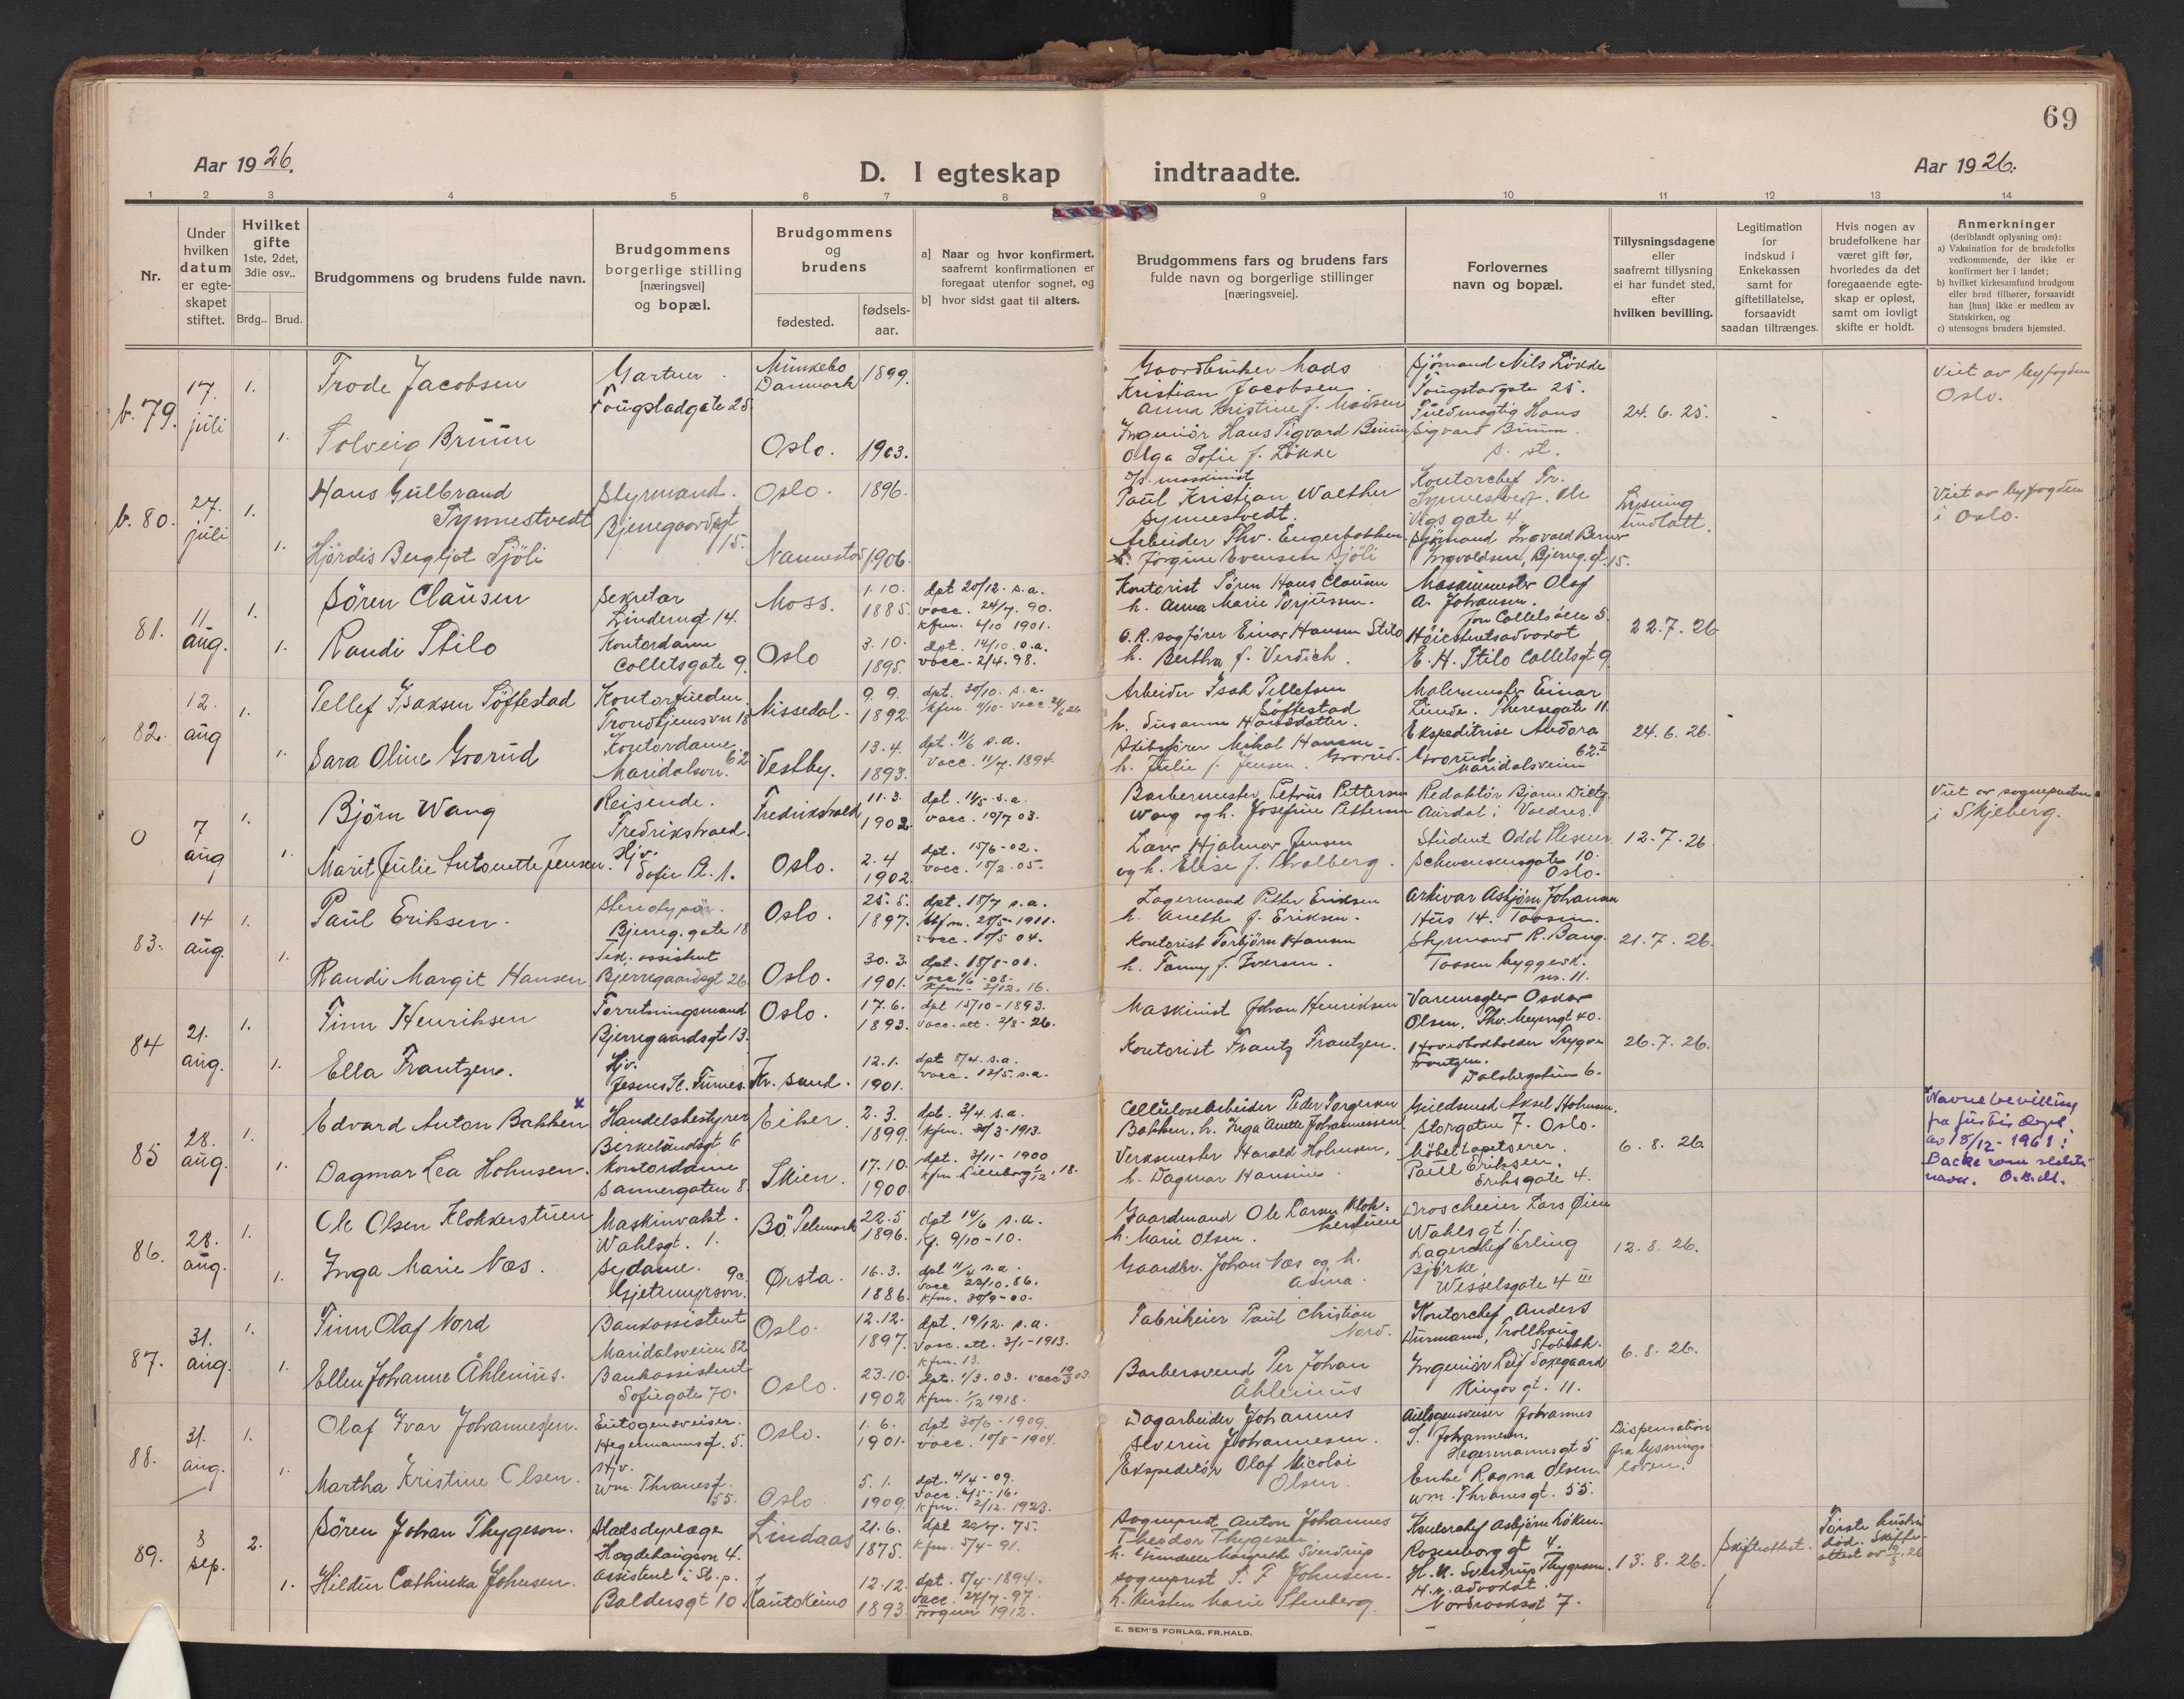 69
Aar 1926.
D. I egteskap indtraadte.
Aar 1926.
1 2 3 4 5 6 7 8 9 10 11 12 13 14
Nr.
Under
hvilken
datum
er egte-
skapet
stiftet.
Hvilket
gifte
1ste, 2det,
3die osv..
Brdg.. Brud.
Brudgommens og brudens fulde navn.
Brudgommens
borgerlige stilling
[næringsvei]
og bopæl.
Brudgommens
og
brudens
fødested.
fødsels-
aar.
a] Naar og hvor konfirmert,
saafremt konfirmationen er
foregaat utenfor sognet, og
b] hvor sidst gaat til alters.
Brudgommens fars og brudens fars
fulde navn og borgerlige stillinger
[næringsveie].
Forlovernes
navn og bopæl.
Tillysningsdagene
eller
saafremt tillysning
ei har fundet sted,
efter
hvilken bevilling.
Legitimation
for
indskud i
Enkekassen
samt for
giftetillatelse,
forsaavidt
saadan tiltrænges.
Hvis nogen av
brudefolkene har
været gift før,
hvorledes da det
foregaaende egte-
skap er opløst,
samt om lovligt
skifte er holdt.
Anmerkninger
(deriblandt oplysning om):
a) Vaksination for de brudefolks
vedkommende, der ikke er
konfirmert her i landet;
b) hvilket kirkesamfund brudgom
eller brud tilhører, forsaavidt
han [hun] ikke er medlem av
Statskirken, og
c) utensogns bruders hjemsted.
b. 79.
17.
juli
1.
1.
Frode Jacobsen
Solveig Bruun
Gartner.
Fougstadgate 25
Munkebo
Danmark
1899.
Oslo.
1903.
Gaardbruker Mads
Kristian Jacobsen.
Anna Kristine f. Madsen
Ingeniør Hans Sigvard Bruun
Olga Sofie f. Løkke
Sjømand Nils Løkke
Fougstadgate 25.
Fuldmægtig Hans
Sigvard Bruun.
s. st.
24. 6. 25.
Viet av byfogden
Oslo.
b. 80.
27.
juli
1.
1.
Hans Gulbrand
Synnestvedt
Hjördis Bergljot Sjöli
Styrmand.
Bjerregaardsgt
15.
Oslo.
1896.
Nannestad
1906.
maskinist
Paul Kristian Walther
Synnestvedt.
Arbeider Thv. Engerbakken
Jørgine Evensen Sjöli
Kontorchef Fr.
Synnestvedt. Ole
Vigs gate 4
Sjømand Ingvald Berner
Ingvaldsen, Bjerreg.gt. 15.
Lysning
undlatt.
Viet av byfogden
i Oslo.
81.
11.
aug.
1.
1.
Sören Clausen
Randi Stilo
Sekretær
Linderngt 14.
Kontordame
Colletsgate 9.
Moss.
1.10.
1885.
Oslo
3.10.
1895.
dpt 20/12. s.a.
vacc. 24/7. 90.
kfm. 6/10 1901.
dpt. 14/10. s.a.
vacc. 2/4. 98.
Kontorist Sören Hans Clausen
h. Anna Marie Torjussen.
O.R.sagfører Einar Hansen Stilo
h. Berthra f. Verdich.
Maskinmester Olaf
A. Johansen.
Jon Colletsalle 5.
Høiesteretsadvokat
E. H. Stilo Colletsgt 9
22.7. 26
82.
12.
aug
1.
1.
Tellef Isaksen Töftestad
Sara Oline Gorud
Kontorfuldm.
Trondhjemsvn 18
Kontordame
Maridalsvn. 62
Nissedal.
9.9.
1892.
Vestby.
13.4.
1893.
dpt. 30/10. s.a.
dpt. 11/6 s.a.
vacc. 11/7. 1894.
Arbeider Isak Tellefsen
Töftestad
h. Susanne Hansdatter.
Skibsfører Mikal Hansen
h. Julie f. Jensen.
Malermester Einar
Lunde. Theresegate 11.
Ekspeditrise Andora
Maridalsveien 62
24. 6. 26.
0
7
aug
1.
1.
Björn Wang
Marit Julie Antonette Jensen.
Reisende.
Fredrikstad.
Hjv.
Sofie Pl. 1.
Fredrikstad
11.3.
1902.
Oslo.
2.4
1902.
dpt. 11/5. s.a.
vacc. 10/7 03.
dpt. 15/6-02.
vacc. 15/2.05.
Barbermester Petrus Pettersen
Wang og h. Josefine Pettersen
Hjalmar Jensen
og h. Elise f. Walberg.
Redaktør Bjarne Dietz
Aurdal i Valdres.
Student Odd Plesner
Schwensensgate 10.
Oslo.
12.7.26
Viet av sogneprsten
i Skjeberg.
83.
14
aug.
1.
1.
Paul Eriksen.
Randi Margit Hansen
Stenotypør.
Bjerreg.gate 18
Tek. assistent
Bjerregaardsgt 26
Oslo.
25.5.
1897.
Oslo.
30.3.
1901.
dpt. 18/7 s.a.
kfm. 28/5-1911.
vacc. 10/5 04.
dpt. 18/8-01.
kfm. 3/12. 16.
Lagermand Petter Eriksen
h. Anethe f. Eriksen.
Kontorist Torbjörn Hansen
h. Fanny f. Iversen.
Arkivar Asbjørn Johansen
Hus 14. Taasen.
Styrmand R. Bang.
Taasen byggesk.
nr. 11.
21.7. 26.
84
21.
aug.
1.
1.
Finn Henriksen
Ella Frantzen.
Forretningsmand
Bjerregaardsgt 13.
Hjv.
Oslo.
17.6.
1893.
Kr. sand.
12.1.
1901.
dpt 15/10-1893.
vacc.att. 2/8-26.
dpt 8/4. s.a.
vacc. 13/5. s.a.
Maskinist Johan Henriksen
Kontorist Frantz Frantzen.
Varemægler Oskar
Olsen. Thv. Meyersgt 40.
Hovedbokholder Trygve
Frantzen.
Dalsbergstien 6.
26.7.26.
85
28.
aug.
1.
1.
Edvard Anton Bakken x
Dagmar Lea Holmsen.
Handelsbestyrer
Birkelundsgt 6
Kontordame
Sannergaten 8.
Eiker.
2.3.
1899.
Skien.
17.10.
1900.
dpt. 3/4. s.a.
kfm. 30/3-1913.
dpt. 3/11-1900
kfm. Lilleborg 1/12.18.
Cellulosearbeider Peder Torgersen
Bakken. h. Inga Anette Johannessen
Verksmester Harald Holmsen,
h. Dagmar Hansine.
Guldsmed Aksel Holmsen.
Storgaten 7. Oslo.
Møbeltapetserer
Paul Eriksen.
Eriksgate 4.
6. 8. 26
Navnebevilling
fra Justis dept.
av 18/12-1961:
Backe som slekts-
navn. O.B.M.
86.
28.
aug.
1.
1.
Ole Olsen Klokkerstuen
Inga Marie Næs.
Maskinvakt.
Wahlsgt. 1.
Sydame. 9c
Gjetemyrsvn.
Bö. Telemark
22.5
1896.
Ørsta.
16.3.
1886.
dpt 14/6 s.a.
kf. 9/10-10.
dpt 11/4 s.a.
vacc 22/10.86.
kfm. 30/9-00.
Gaardmand Ole Larsen Klok-
kerstuen
h. Marie Olsen.
Gaardbr. Johan Næs og h.
Asina.
Droscheeier Lars Øien
Wahlsgt 1.
Lagerchef Erling
Björke.
Wesselsgate 4 III
12.8.26.
87.
31.
aug.
1.
1.
Finn Olaf Nord
Ellen Johanne Åhlenius.
Bankassistent
Maridalsveien 82
Bankassistent
Sofiegate 70.
Oslo.
12.12.
1897.
Oslo.
23.10.
1902
dpt. 19/12. s.a.
vacc. att. 3/1-1913.
kfm. 13.
dpt. 1/3.03.
kfm. 1/12 1918.
Fabrikeier Paul Christian
Nord.
Barbersvend Per Johan
Åhlenius
Kontorchef Anders
Durmann, Trollhaug
Stabekk.
Ingeniør Leif Saxegaard
Kingosgt. 11.
6. 8. 26.
88.
31.
aug.
1.
1.
Olaf Ivar Johannessen.
Martha Kristine Olsen.
Autogensveiser.
Hegermannsgt. 5.
Hjv.
Wm. Thranesgt.
55.
Oslo.
1.6.
1901.
Oslo
5.1.
1909.
dpt 30/6-1909.
vacc. 10/8-1904.
dpt. 4/4-09.
vacc. 6/5-16.
kfm. 2/12. 1923.
Dagarbeider Johannes
Severin Johannesen.
Ekspeditør Olaf Nicolai
Olsen.
Autogensveiser Johannes
S. Johannesen.
Hegermannsgt 5
Enke Ragna Olsen
Wm. Thranesgt. 55.
Dispensation
fra lysnings-
loven.
89.
3
sep.
2.
1.
Sören Johan Thygeson.
Hildur Cathinka Johnsen.
Stadsdyrlæge
Hægdehaugsvn 4.
Assistent i St. p.
Baldersgt 10.
Lindaas
21.6.
1875.
Kautokeino
12.12.
1893.
dpt 22/7. 75.
kfm. 5/4-91.
dpt. 8/4-1894.
vacc. 24/7-97.
Frogner 1912.
Sogneprest Anton Johannes
Theodor Thygesen.
h. Gundelle Margrethe Sverdrup
Sogneprest S. F. Johnsen.
h. Kirsten Marie Stenberg.
Kontorchef Asbjørn Løken.
Rosenborggt 4.
H. U. Sverdrup Thygeson.
H.r. advokat.
Nordraaksgt 7.
13. 8. 26.
Skifteattest.
Første hustru
død. Skifte-
attest av 9/8.26
E. SEM'S FORLAG, FR.HALD.